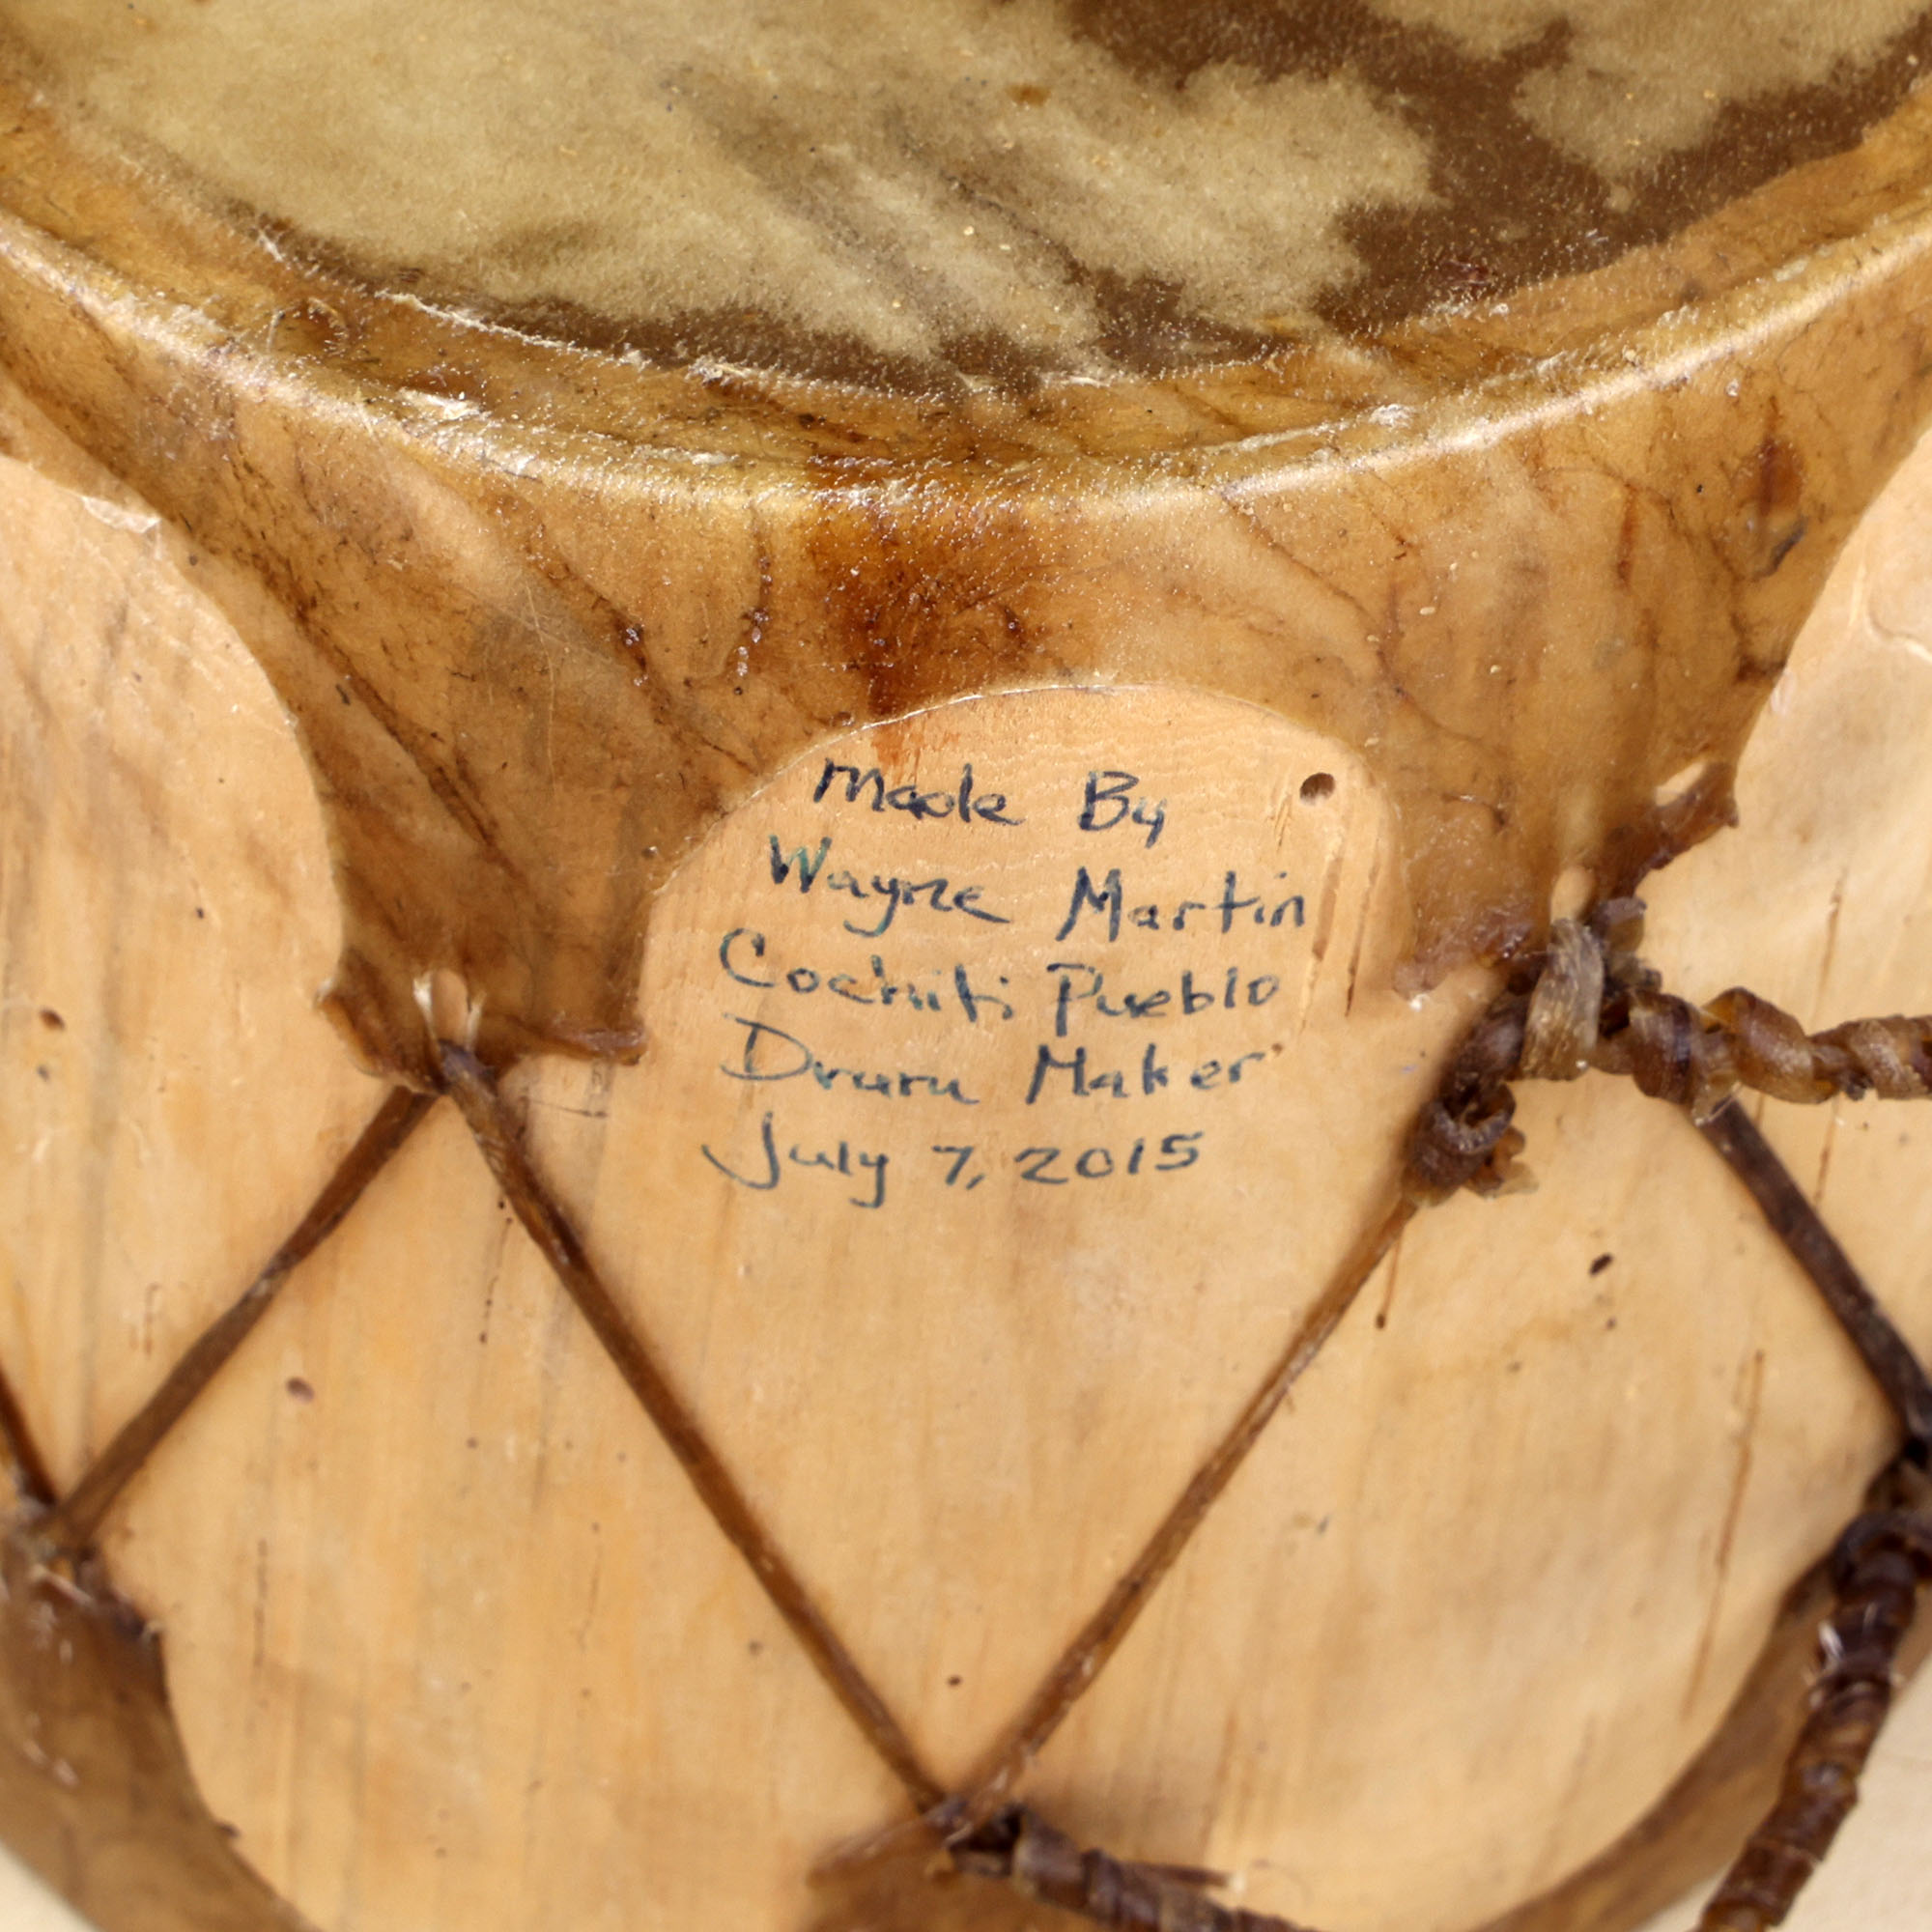 Made By
Wayne Martin
Cochiti Pueblo
Drum Maker
July 7, 2015